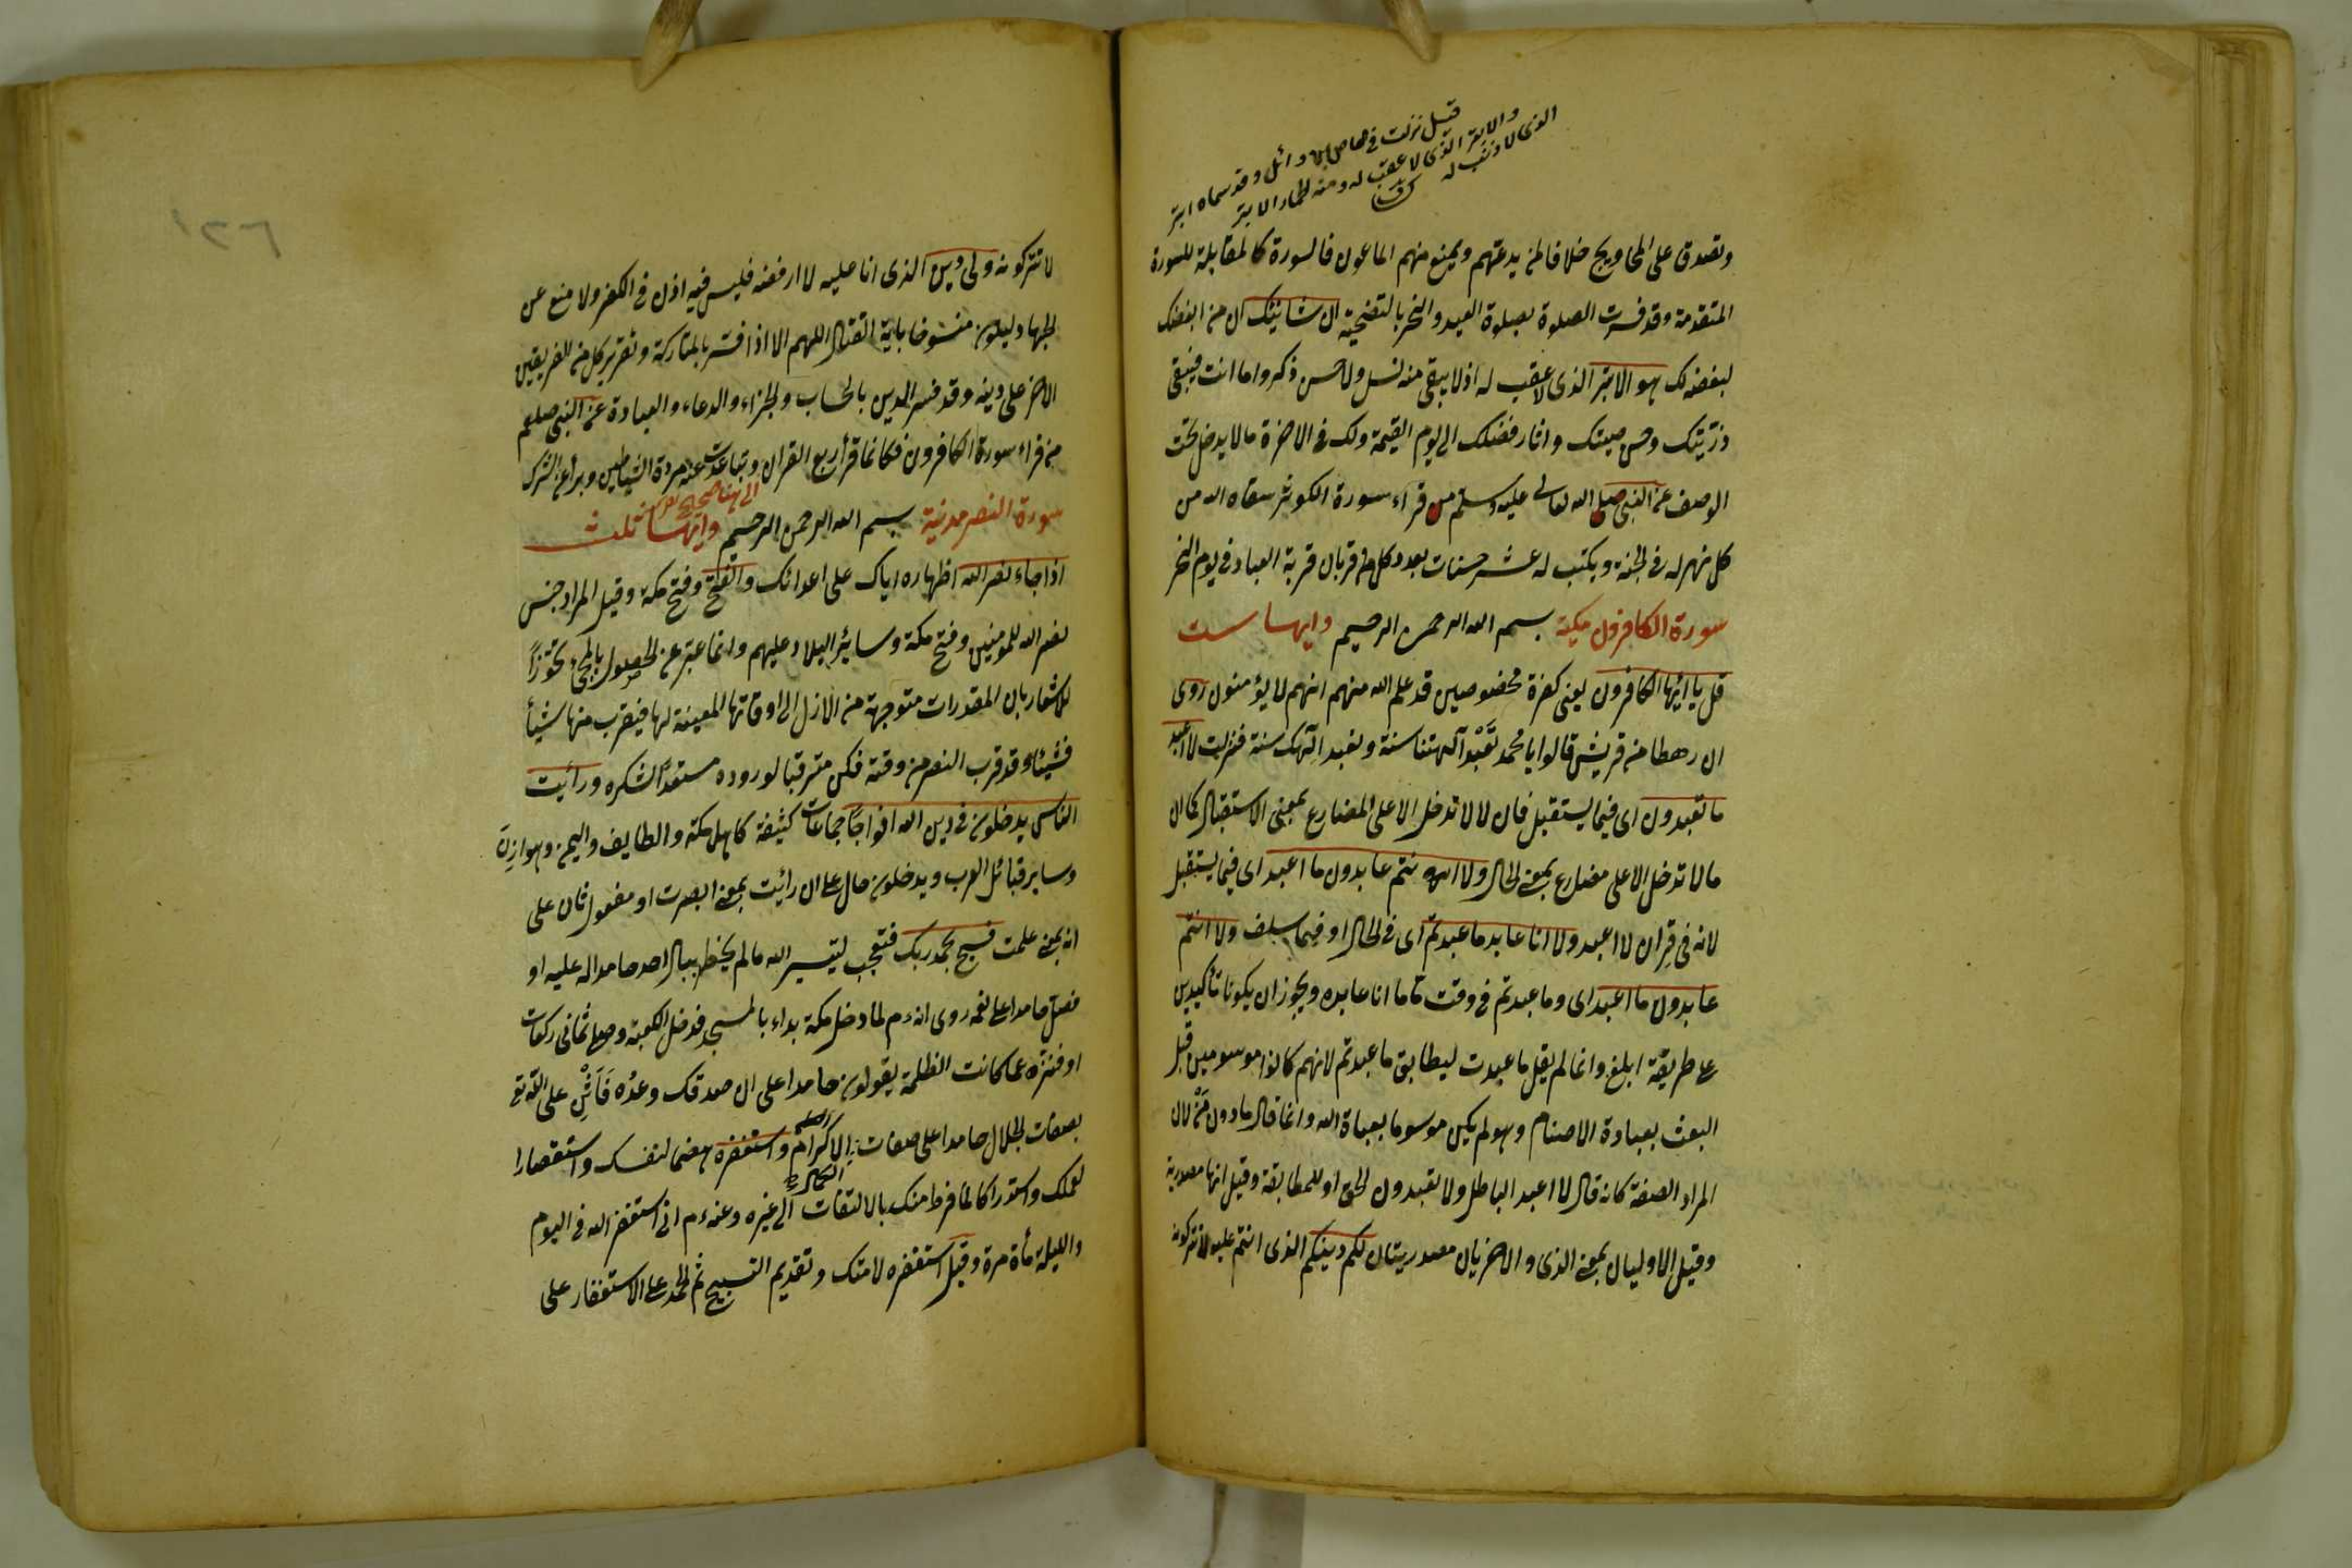 قيل نزلت في عاص بن وائل وقد سماه ابتر
والابتر الذى لا عقب له ومنه الحمار الابتر
الذى لا ذنب له
وتصدق على المحاويج خلافا لمن يدعهم ويمنع منهم الماعون فالسورة كالمقابلة للسورة
المتقدمة وقد فسرت الصلوة بصلوة العيد والنحر بالتضحية ان شانئك ان من ابغضك
لبغضه لك هو الابتر الذى لا عقب له اذ لا يبقى منه نسل ولا حسن ذكر واما انت فيبقى
ذريتك وحسن صيتك واثار فضلك الى يوم القيمة ولك فى الاخرة ما لا يدخل تحت
الوصف عن النبى صلى الله تعالى عليه وسلم من قراء سورة الكوثر سقاه الله من
كل نهر له فى الجنة ويكتب له عشر حسنات بعدد كل قربان قربه العباد فى يوم النحر
سورة الكافرون مكية بسم الله الرحمن الرحيم وايها ست
قل يا ايها الكافرون يعنى كفرة مخصوصين قد علم الله منهم انهم لا يؤمنون روى
ان رهطا من قريش قالوا يا محمد تعبد آلهتنا سنة ونعبد الهك سنة فنزلت لا اعبد
ما تعبدون اى فيما يستقبل فان لا لا تدخل الا على المضارع بمعنى الاستقبال كما ان
ما لا تدخل الا على مضارع بمعنى الحال ولا انتم عابدون ما اعبد اى فيما يستقبل
لانه فى قران لا اعبد ولا انا عابد ما عبدتم اى فى الحال او فيما سلف ولا انتم
عابدون ما اعبد اى وما عبدتم فى وقت ما ما انا عابده ويجوز ان يكونا تأكيدين
على طريقة ابلغ وانما لم يقل ما عبدت ليطابق ما عبدتم لانهم كانوا موسومين قبل
البعث بعبادة الاصنام وهو لم يكن موسوما بعباة الله وانما قال ما دون من لان
المراد الصفة كانه قال لا اعبد الباطل ولا تعبدون الحق او للمطابقة وقيل انها مصدرية
وقيل الاوليان بمعنى الذى والاخريان مصدريتان لكم دينكم الذى انتم عليه لا تتركونه
لا تتركونه ولى دين الذى انا عليه لا ارفضه فليس فيه اذن فى الكفر ولا منع عن
الجهاد ليكون منسوخا باية القتال اللهم الا اذا فسر بالمتاركة وتقرير كل من الفريقين
الاخر على دينه وقد فسر الدين بالحساب والجزاء والدعاء والعبادة عن النبى صلعم
من قراء سورة الكافرون فكانما قرأ ربع القران وتباعدت عنه مردة الشياطين وبرأ عن الشرك
سورة النصر مدنية بسم الله الرحمن الرحيم وايها ثلث
اذا جاء نصر الله اظهاره اياك على اعدائك والفتح وفتح مكة وقيل المراد جنس
نصر الله للمومنين وفتح مكة وسائر البلاد عليهم وانما عبر عن الحصول بالمجئ تجوزاً
للاشعار بان المقدرات متوجهة من الازل الى اوقاتها المعينة لها فيقرب منها شيأ
فشيئا وقد قرب النصر من وقته فكن مترقبا لوروده مستعدًا لشكره ورأيت
الناس يدخلون فى دين الله افواجًا جماعات كثيفة كاهل مكة والطايف واليمن وهوازن
وساير قبائل العرب ويدخلون حال على ان رأيت بمعنى ابصرت او مفعول ثان على
انه بمعنى علمت فسبح بحمد ربك فتعجب لتيسير الله ما لم يخطر ببال احد حامدا له عليه او
فصل حامدا على نعمه روى انه عم لما دخل مكة بداء بالمسجد فدخل الكعبة وصلى ثمانى ركعات
او فنزهه عما كانت الظلمة يقولون حامدا على ان صدقك وعده فَاَثْنِ على الله تع
بصفات الجلال حامدا على صفات الاكرام واستغفره هضما لنفسك واستقصارا
لعملك واستدراكا لما فرط منك بالالتفات الى غيره وعنه عم انى استغفر الله فى اليوم
والليلة مأة مرة وقيل استغفره لامتك وتقديم التسبيح ثم الحمد على الاستغفار على